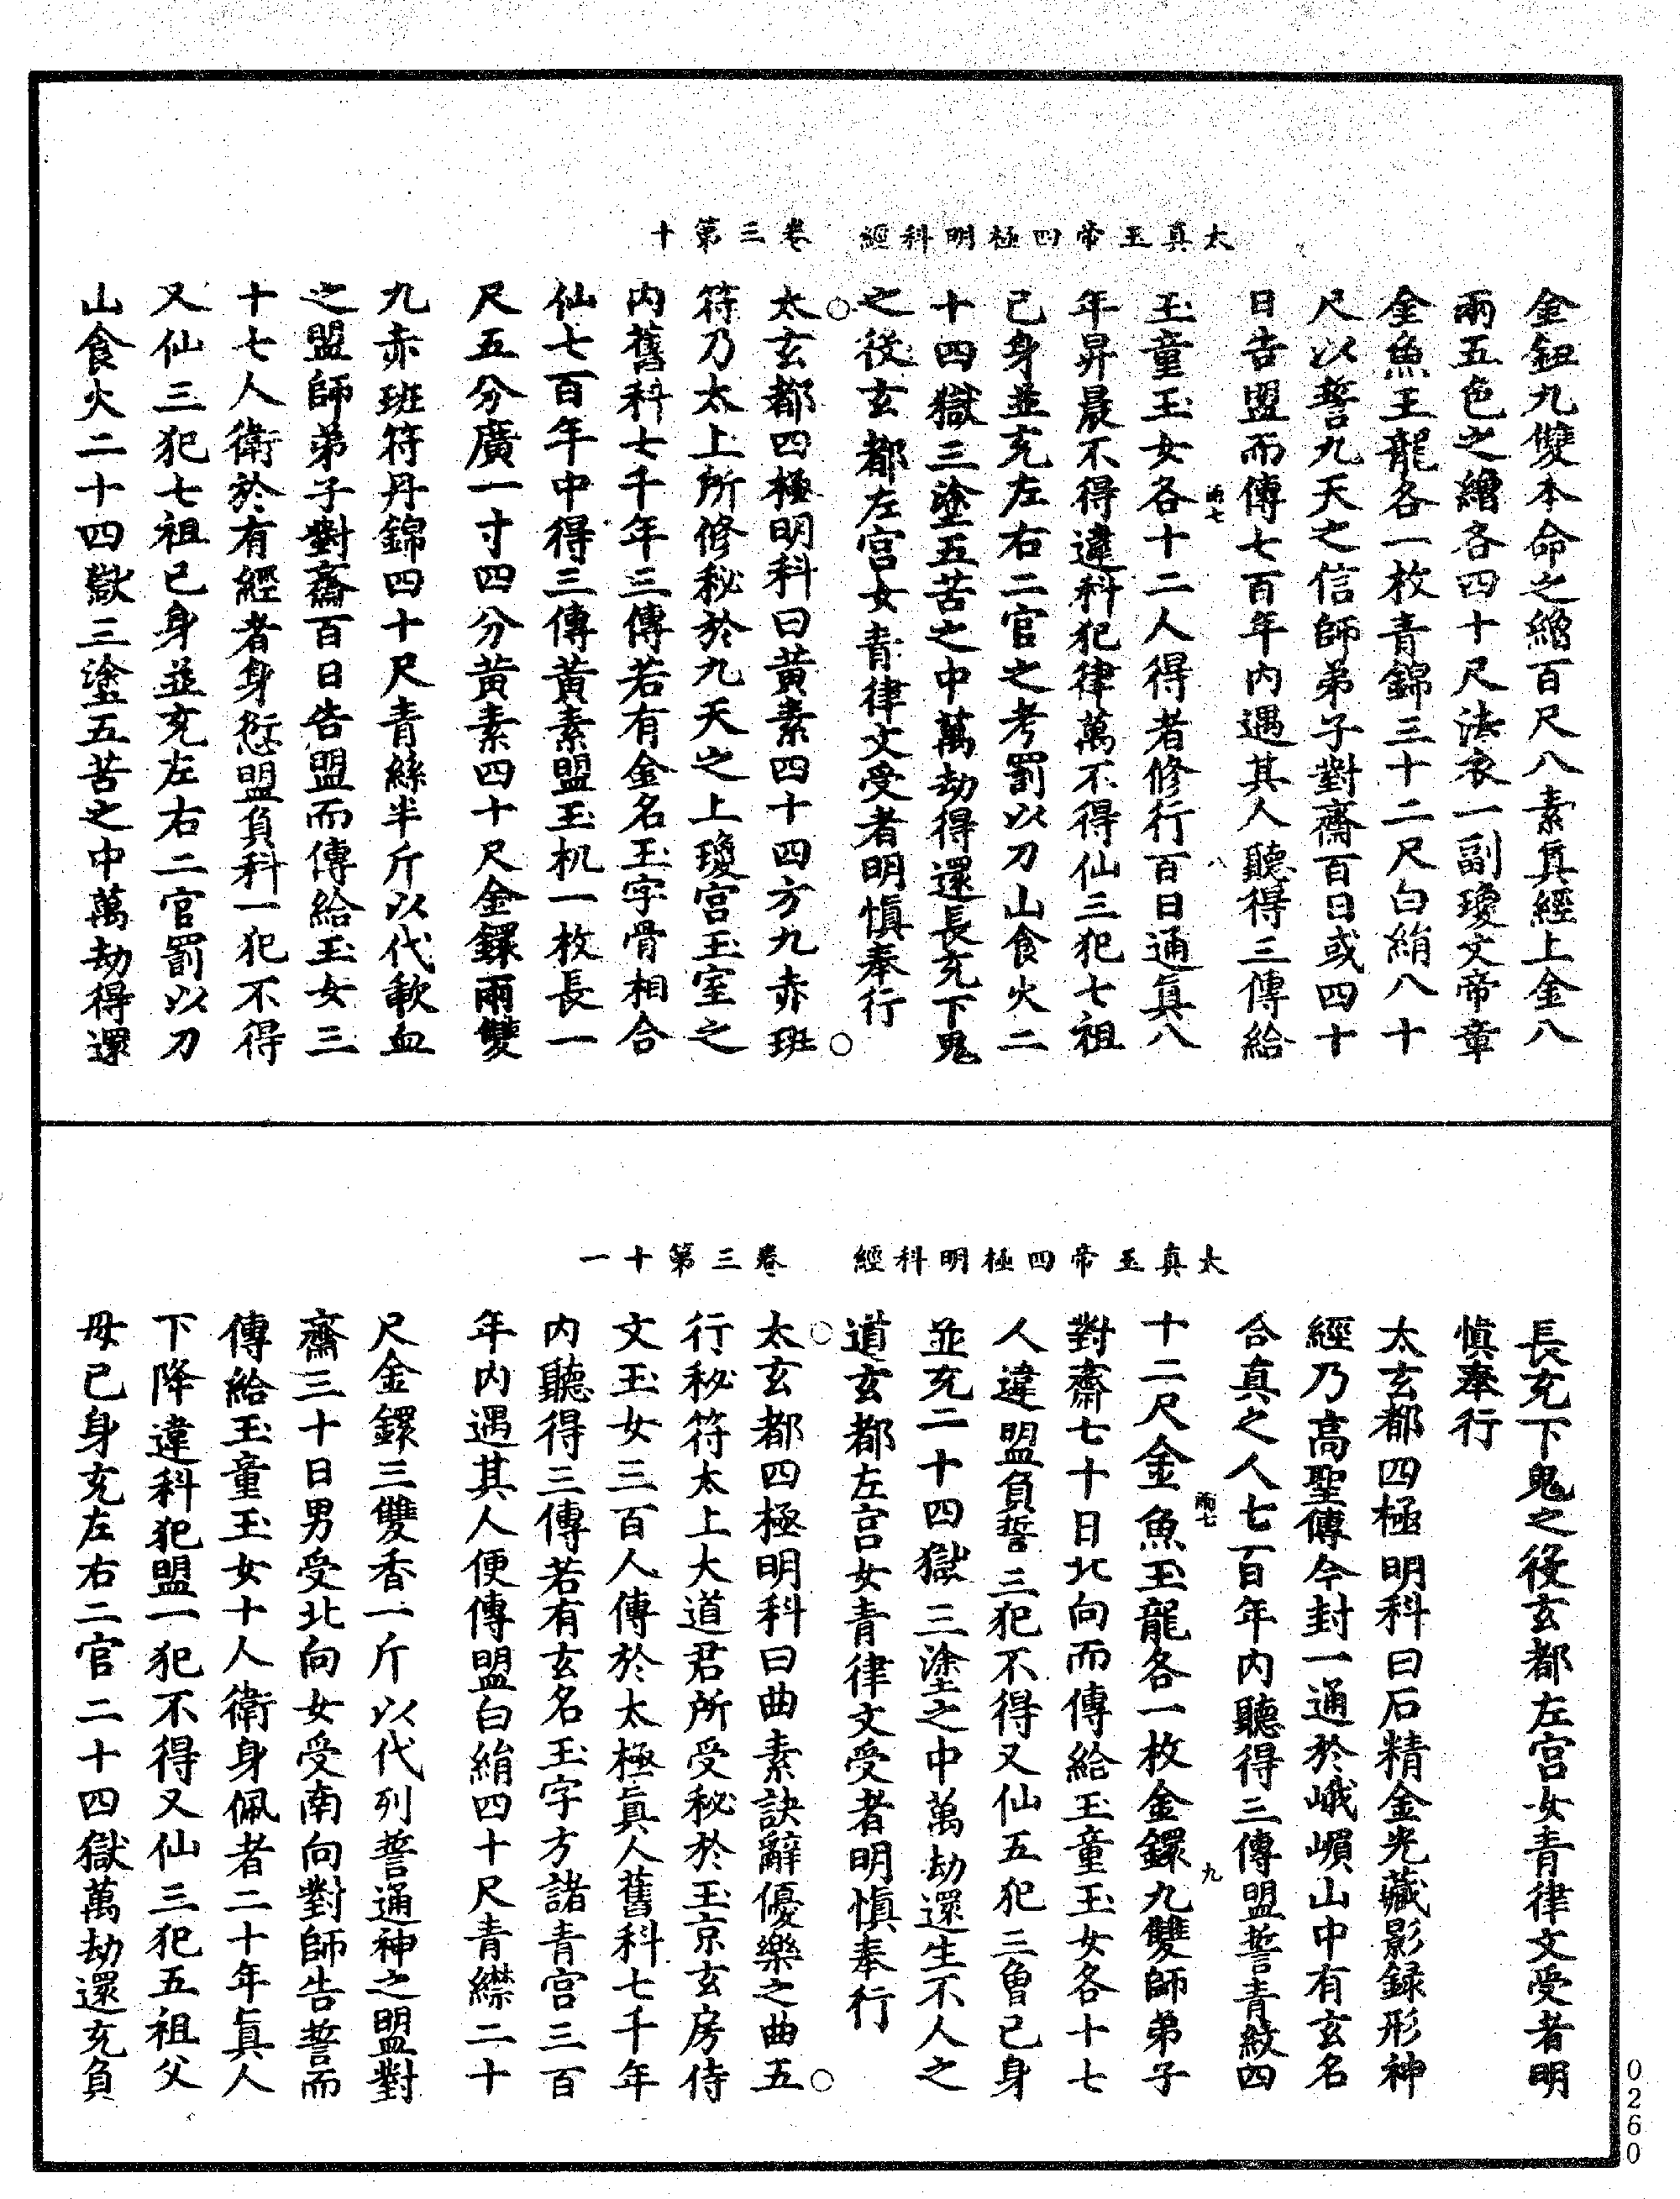 太真玉帝四極明科經　卷三第十
金鈕九雙本命之繒百尺八素真經上金八
兩五色之繒各四十尺法衣一副瓊文帝章
金魚玉龍各一枚青錦三十二尺白絹八十
尺以誓九天之信師弟子對齋百日或四十
日告盟而傳七百年內遇其人聽得三傳給
雨七　八
玉童玉女各十二人得者修行百日通真八
年昇晨不得違科犯律萬不得仙三犯七祖
己身並充左右二官之考罰以刀山食火二
十四獄三塗五苦之中萬劫得還長充下鬼
之役玄都左宮女青律文受者明慎奉行
○
太玄都四極明科曰黃素四十四方九赤班
○
符乃太上所修秘於九天之上瓊宮玉室之
內舊科七千年三傳若有金名玉字骨相合
仙七百年中得三傳黃素盟玉机一枚長一
尺五分廣一寸四分黃素四十尺金鐶兩雙
九赤班符丹錦四十尺青絲半斤以代歃血
之盟師弟子對齋百日告盟而傳給玉女三
十七人衛於有經者身愆盟負科一犯不得
又仙三犯七祖己身並充左右二官罰以刀
山食火二十四獄三塗五苦之中萬劫得還
太真玉帝四極明科經　卷三第十一
長充下鬼之役玄都左宮女青律文受者明
慎奉行
太玄都四極明科曰石精金光藏影錄形神
經乃高聖傳今封一通於峨嵋山中有玄名
合真之人七百年內聽得三傳盟誓青紋四
雨七　九
十二尺金魚玉龍各一枚金鐶九雙師弟子
對齋七十日北向而傳給玉童玉女各十七
人違盟負誓三犯不得又仙五犯三曾己身
並充二十四獄三塗之中萬劫還生不人之
道玄都左宮女青律文受者明慎奉行
○
太玄都四極明科曰曲素訣辭優樂之曲五
○
行秘符太上大道君所受秘於玉京玄房侍
文玉女三百人傳於太極真人舊科七千年
內聽得三傳若有玄名玉字方諸青宮三百
年內遇其人便傳盟白絹四十尺青繓二十
尺金鐶三雙香一斤以代列誓通神之盟對
齋三十日男受北向女受南向對師告誓而
傳給玉童玉女十人衛身佩者二十年真人
下降違科犯盟一犯不得又仙三犯五祖父
母己身充左右二官二十四獄萬劫還充負
0260